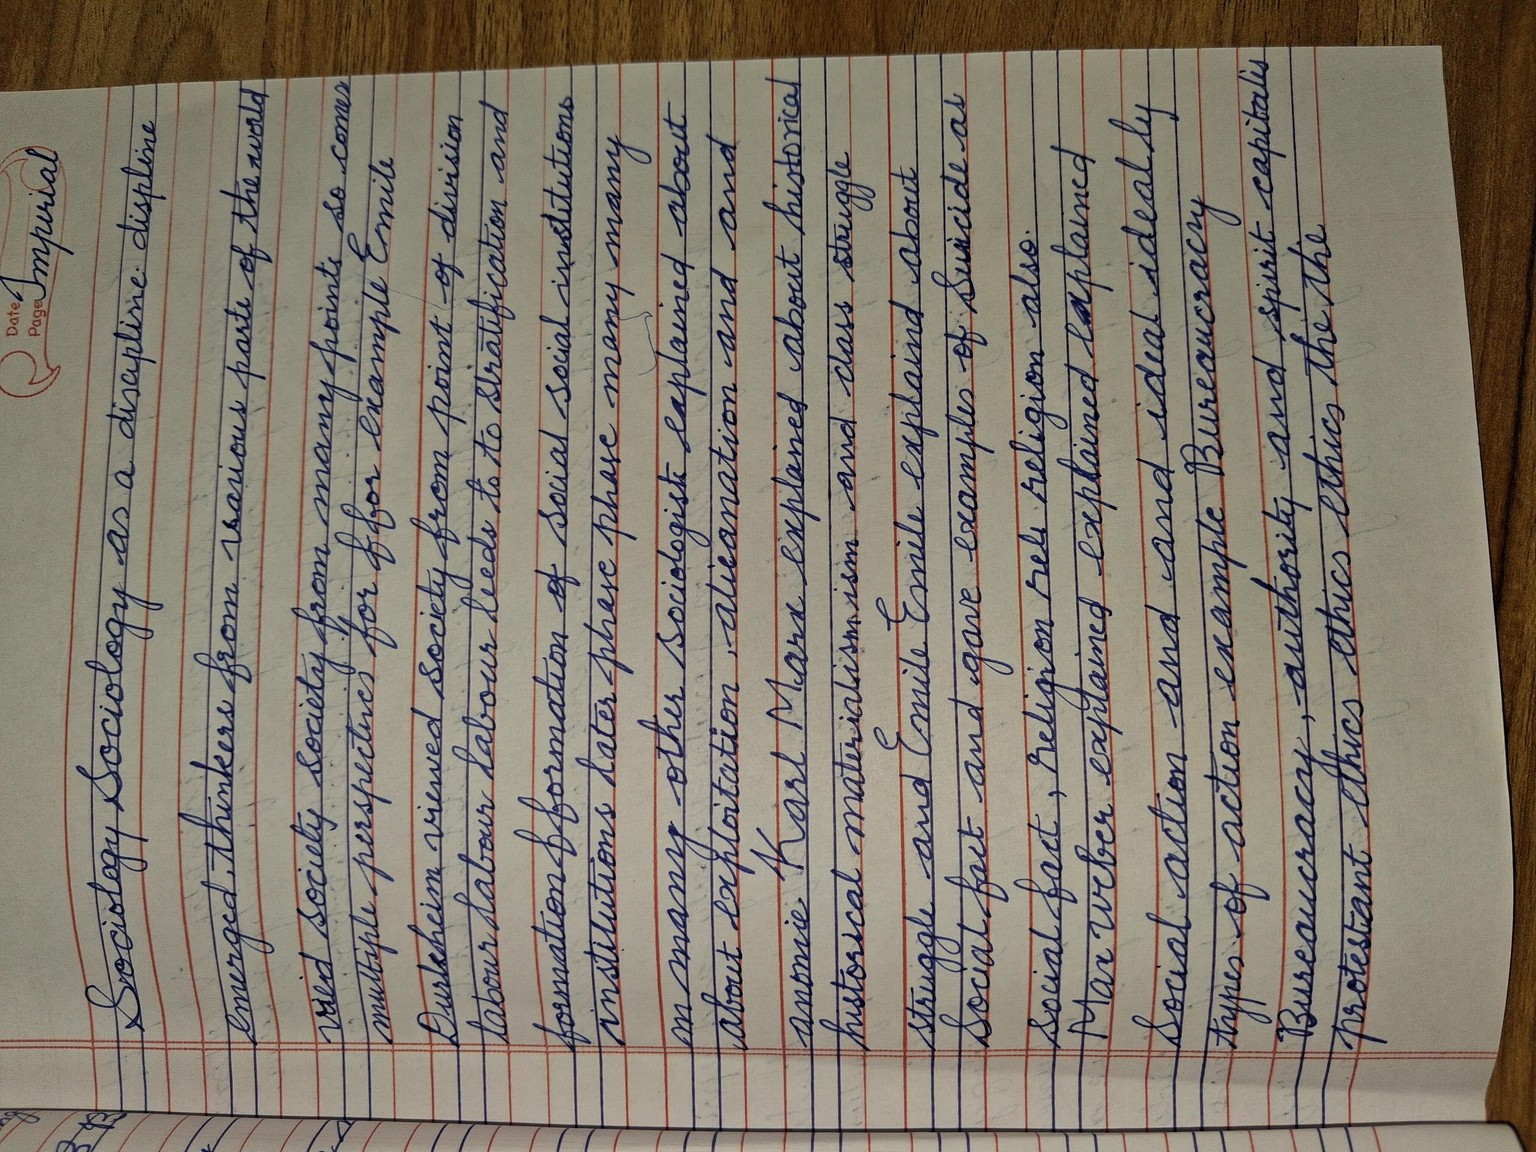 Date
Page
Imperial
Sociology Sociology as a discipline displine
emerged, thinkers from various parts of the world
vieid society society from many points so comes
multiple perspectives for ffor example Emile
Durkheim viewed society from point of division
labour labour labour leeds to to stratification and
formation fformation of social social institutions
institutions later phase phase many many
m many other sociologists explained about
about exploitation, alienation and and
anomie Karl Marx explained about historical
historical materialismism and class struggle
struggle and Emile Emile explaind about
Social fact and gave examples of Suicide as
social fact, religion reli religion also.
Max weber explained explained explained
Social action and and ideal ideal ly
types of action example Bureaucracy
Bureaucracy, authority and spirit capitalis
protestant ethics ethics ethics the the